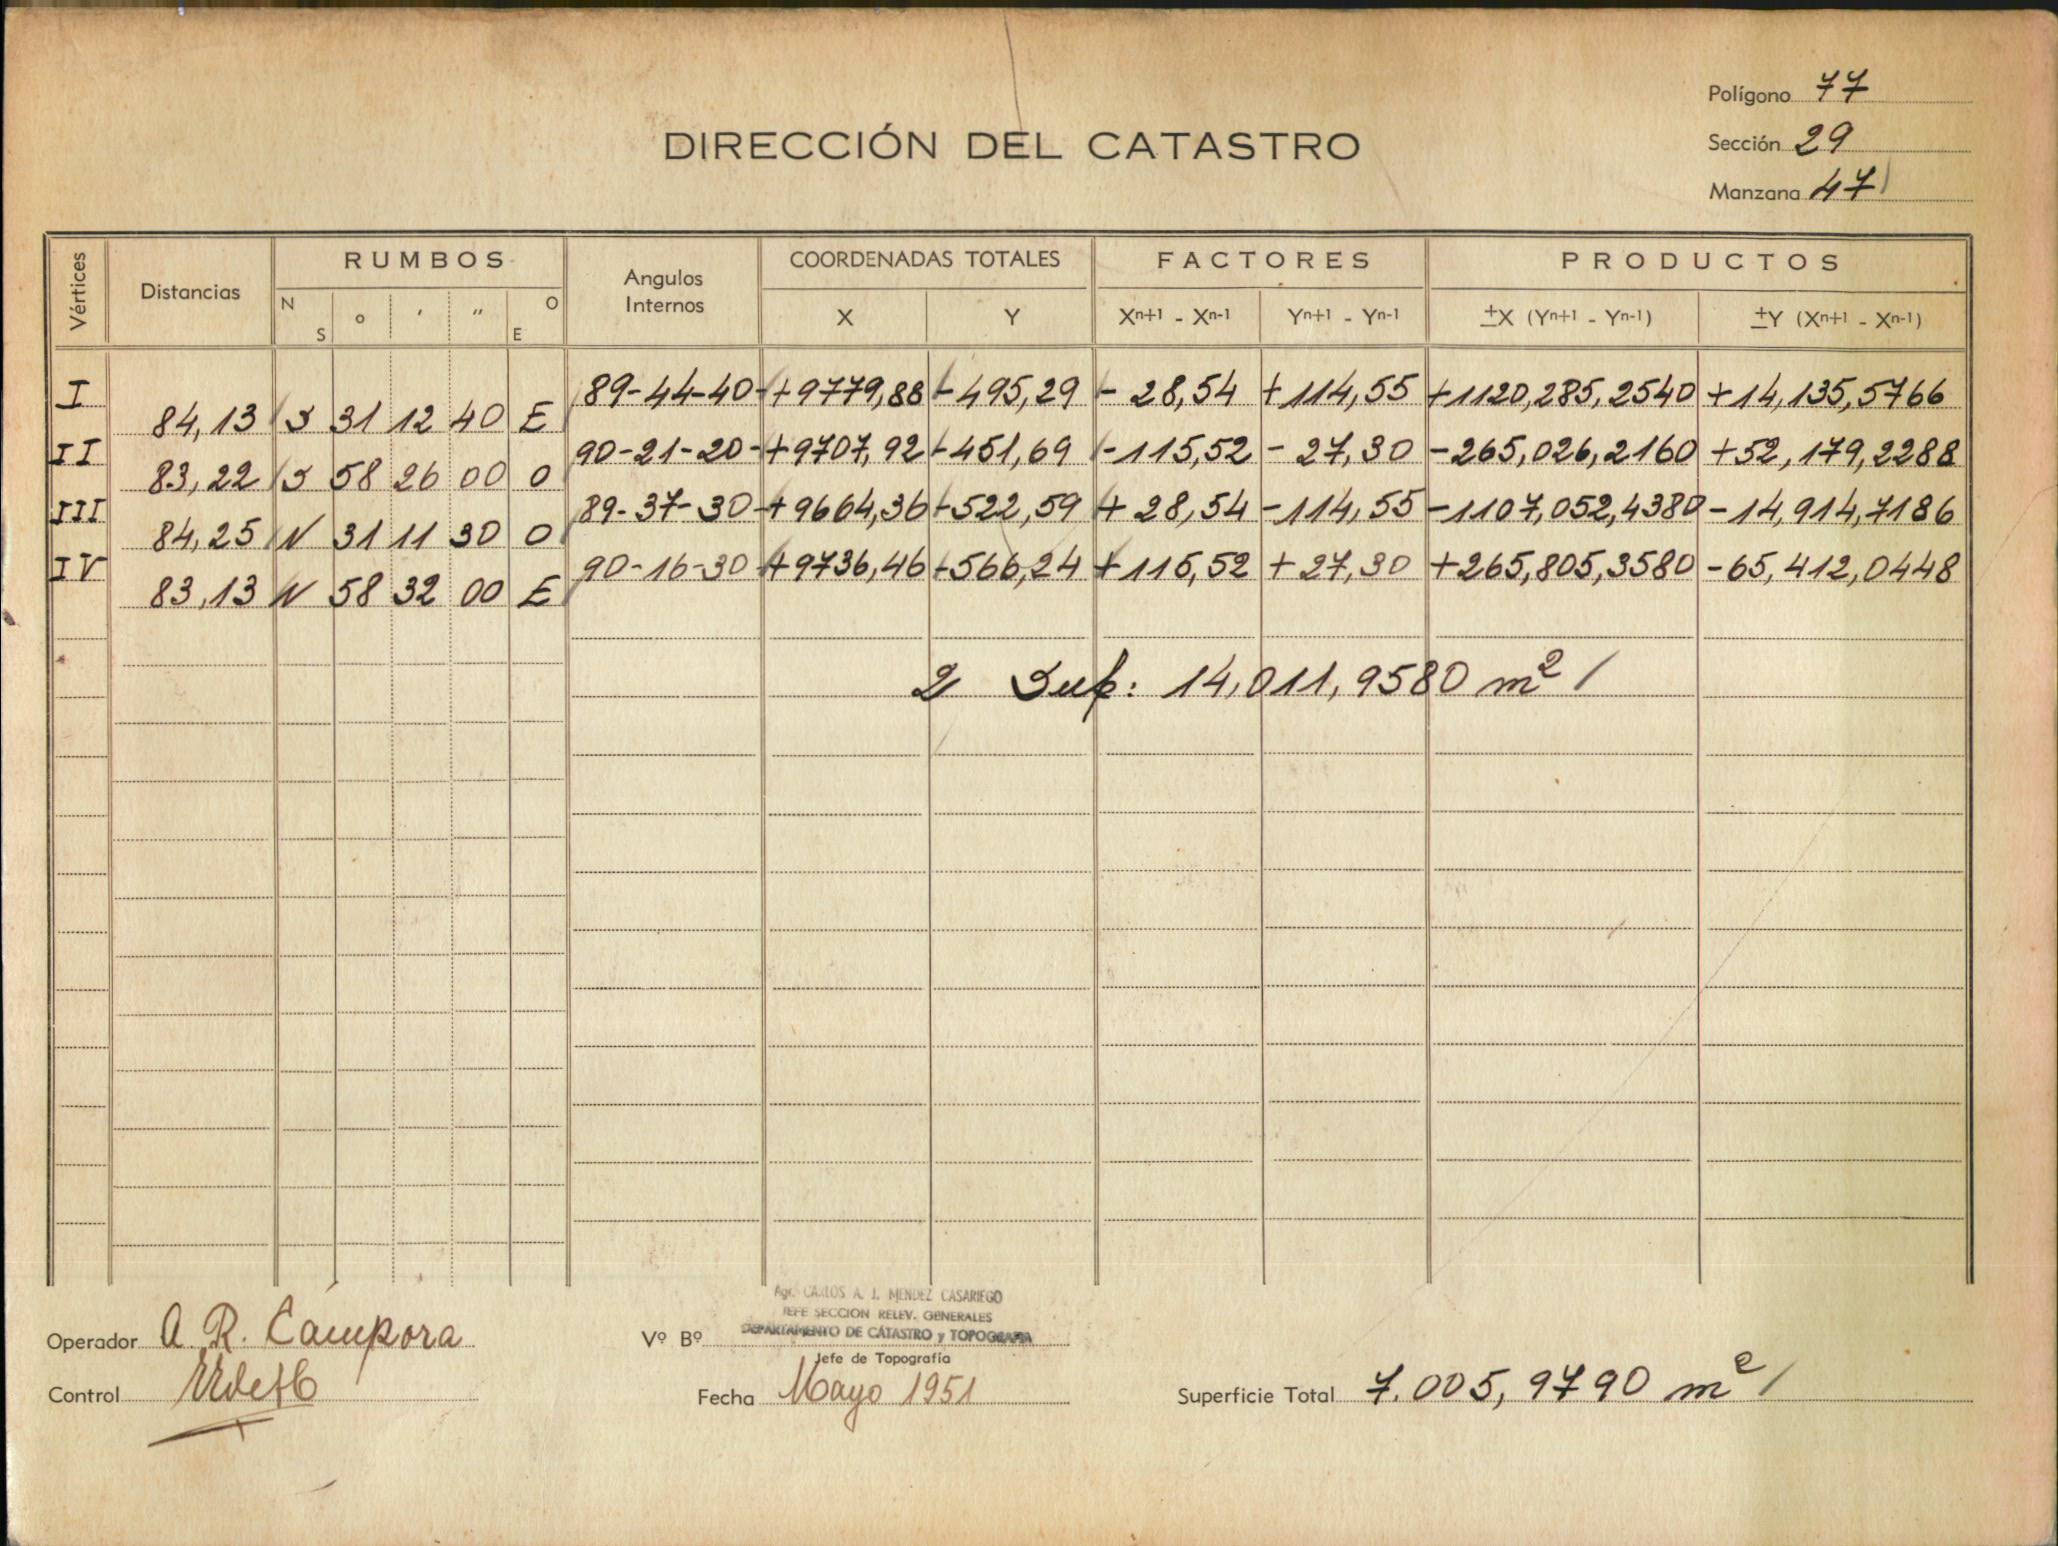 Polígono 77
DIRECCIÓN DEL CATASTRO
Sección 29
Manzana 47
Vértices Distancias RUMBOS Angulos Internos COORDENADAS TOTALES FACTORES PRODUCTOS
N S o ' " O E X Y Xn+1 - Xn-1 Yn+1 - Yn-1 ±X (Yn+1 - Yn-1) ±Y (Xn+1 - Xn-1)
I 89-44-40 +9779,88 -495,29 - 28,54 +114,55 +1120,285,2540 +14,135,5766
84,13 S 31 12 40 E
II 90-21-20 +9707,92 -451,69 -115,52 - 27,30 -265,026,2160 +52,179,2288
83,22 S 58 26 00 O
III 89-37-30 +9664,36 -522,59 + 28,54 -114,55 -1107,052,4380 -14,914,7186
84,25 N 31 11 30 O
IV 90-16-30 +9736,46 -566,24 +115,52 +27,30 +265,805,3580 -65,412,0448
83,13 N 58 32 00 E
2 Sup: 14,011,9580 m²
Agr. CARLOS A. J. MENDEZ CASARIEGO
JEFE SECCION RELEV. GENERALES
DEPARTAMENTO DE CATASTRO y TOPOGRAFIA
Operador A. R. Cámpora Vº Bº
Jefe de Topografía
Control Fecha Mayo 1951 Superficie Total 7.005,9790 m²